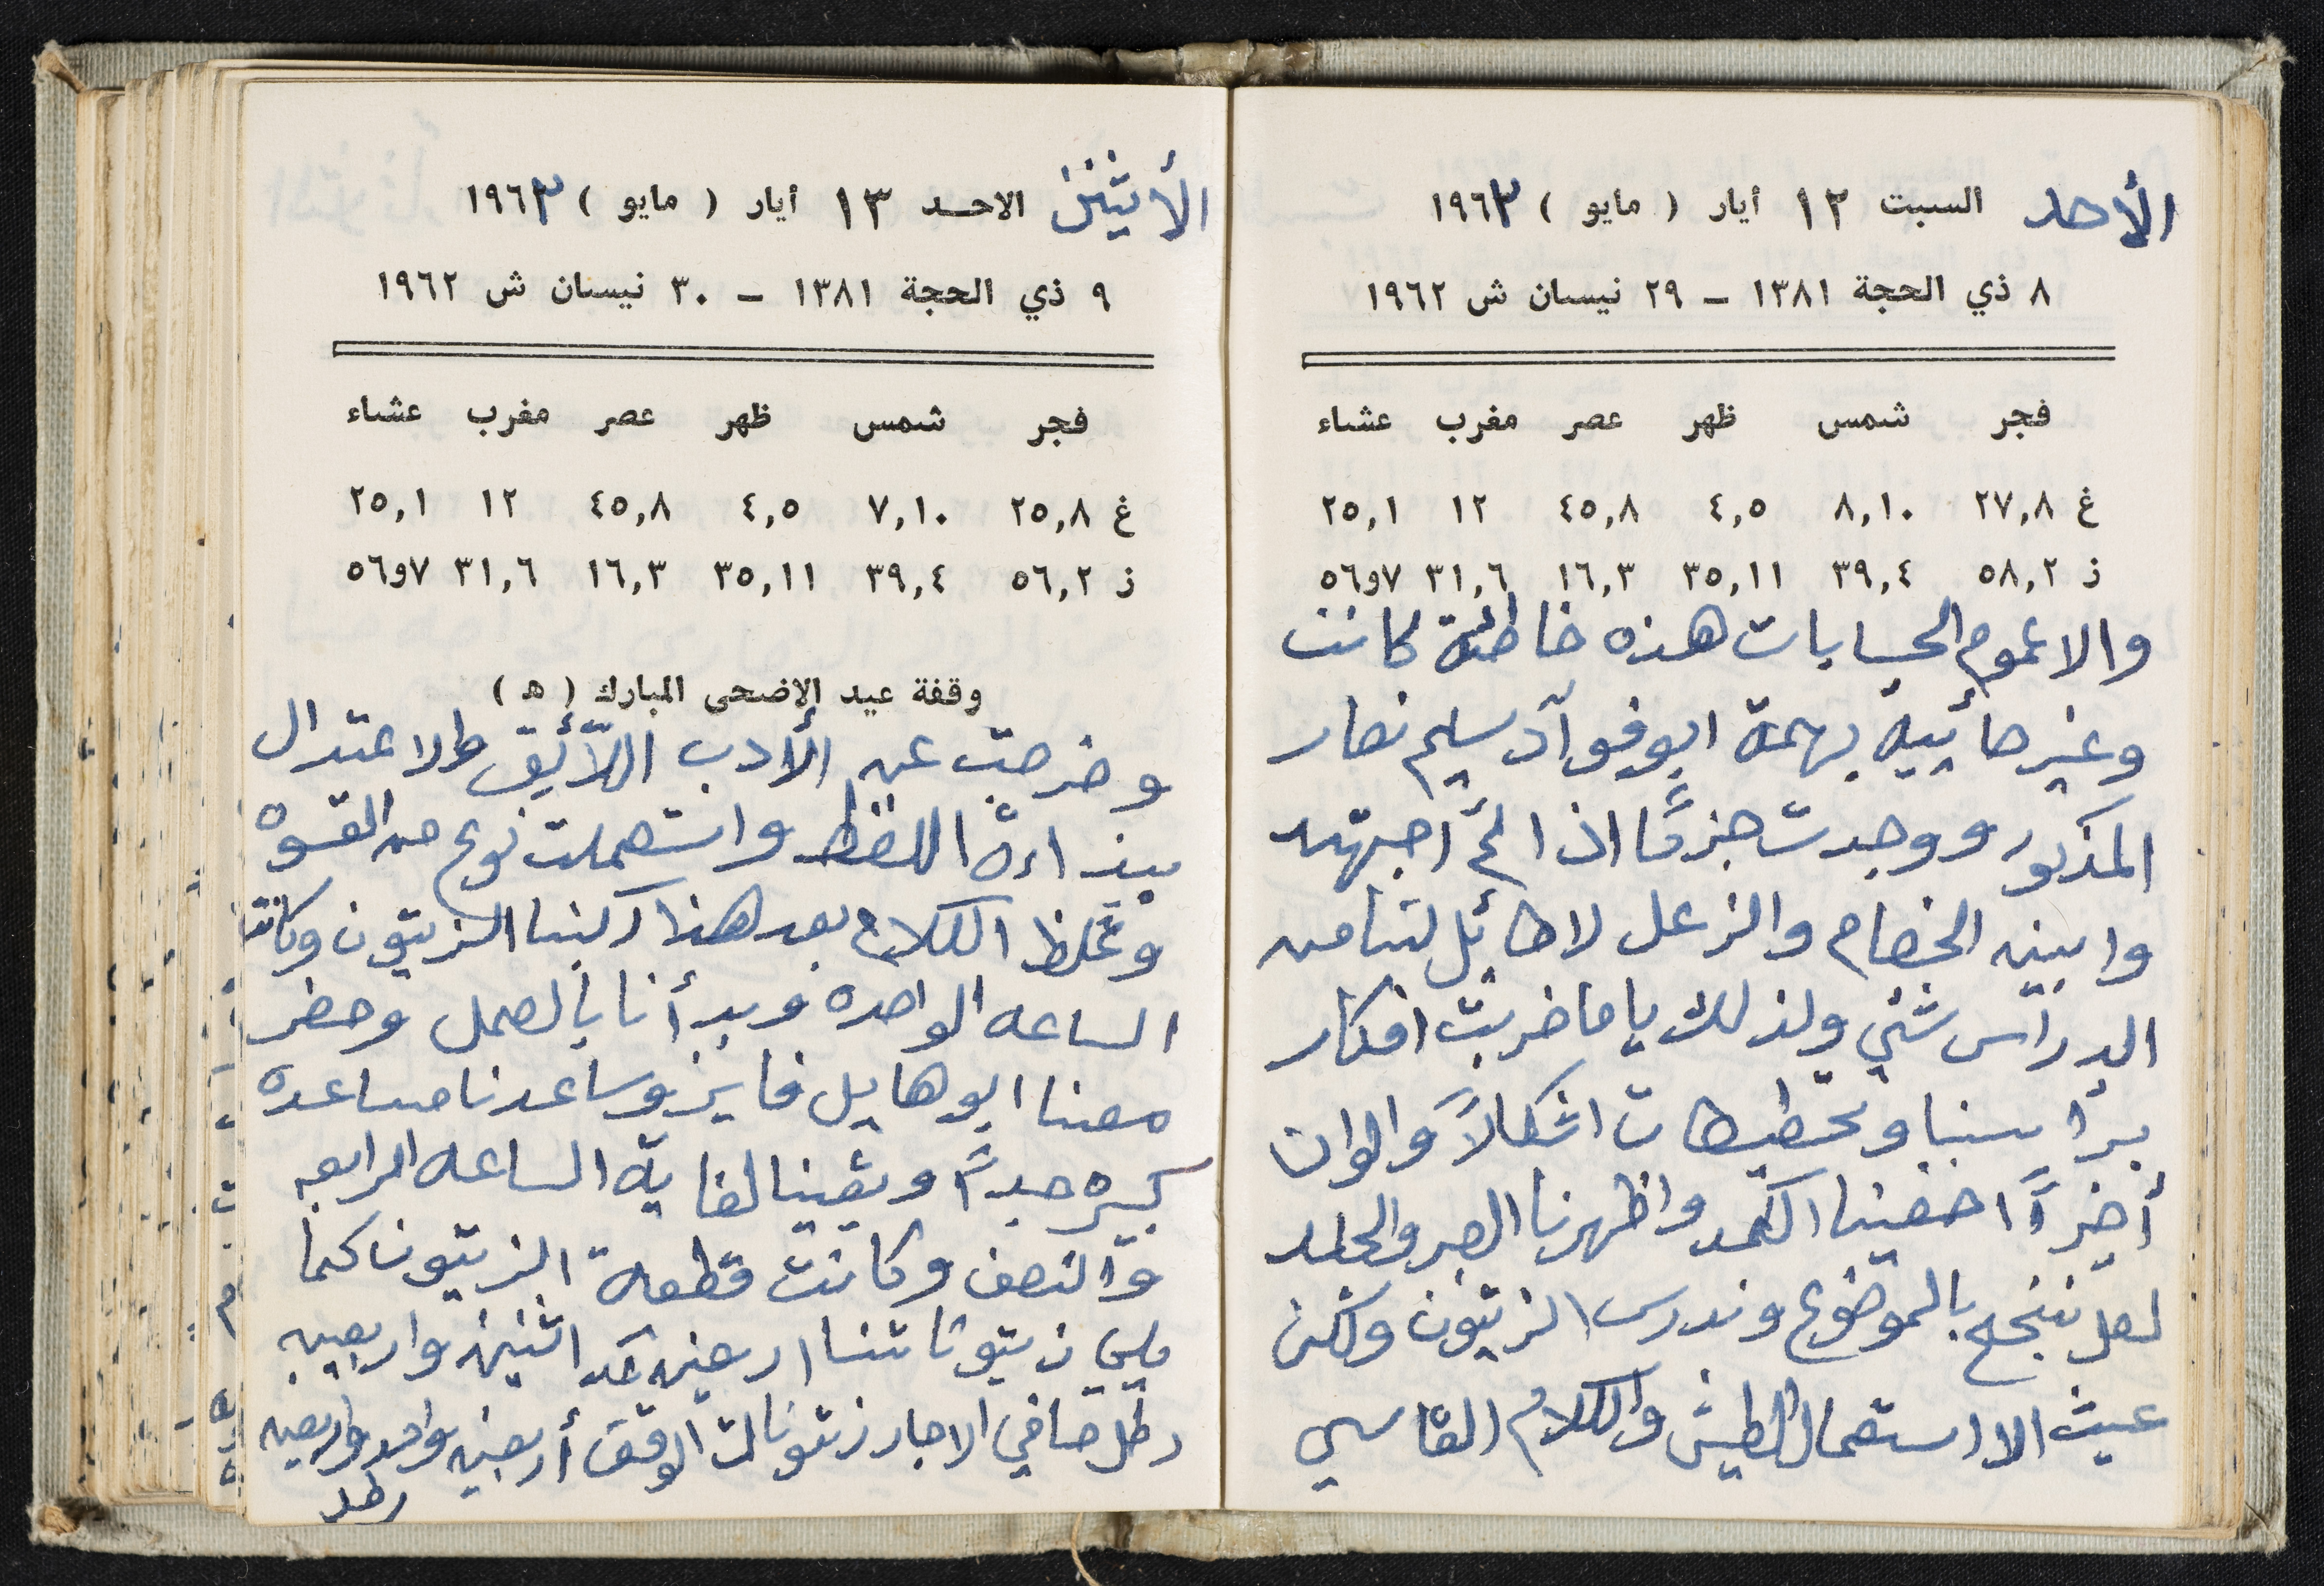 الأحد السبت ١٢ أيار ( مايو ) ١٩٦٣
٨ ذي الحجة ١٣٨١ - ٢٩ نيسان ش ١٩٦٢
فجر شمس ظهر عصر مغرب عشاء
غ ٢٧,٨ ٨,١٠ ٤,٥ ٤٥,٨ ١٢ ٢٥,١
ز ٥٨,٢ ٣٩,٤ ٣٥,١١ ١٦,٣ ٣١,٦ ٧و٥٦
والا عموم الحسابات هذه خاطئة كانت
وغير صائبيه بهمة ابو فوآد سليم نصار
المذكور ووجدت جزمًا اذا لم أجبهه
وابينه الخصام والزعل لا طائل لنا من
الدراس شئي ولذلك ياما ضربت افكار
براسنا وتخطيطات اشكالاً والوان
أخيرًا اخفينا الكمد واظهرنا الصبر والجلد
لعل ننجح بالموضوع وندرس الزيتون ولكن
عبث الا استعمال الطيش والكلام القاسي
الأثينين الاحد ١٣ أيار ( مايو ) ١٩٦٣
٩ ذي الحجة ١٣٨١ - ٣٠ نيسان ش ١٩٦٢
فجر شمس ظهر عصر مغرب عشاء
غ ٢٥,٨ ٧,١٠ ٤,٥ ٤٥,٨ ١٢ ٢٥,١
ز ٥٦,٢ ٣٩,٤ ٣٥,١١ ١٦,٣ ٣١,٦ ٧و٥٦
وقفة عيد الاضحى المبارك ( ه )
وخرجت عن الأدب اللآئق والاعتدال
ببذاءة اللفظ واستعملت نوع من القسوة
وغلظ الكلام بعد هذا ركبنا الزيتون وكانت
الساعه الواحده وبدأنا بالعمل وحضر
معنا ابو هايل فايز وساعدنا مساعده
كبيره جدًا وبقينا لغاية الساعه الرابعه
والنصف وكانت قطعة الزيتون كما
يلي زيتوناتنا اربعين اثنين واربعين
رطل صافي الاجار زيتونات الوقف أربعين واحد واربعين
رطل